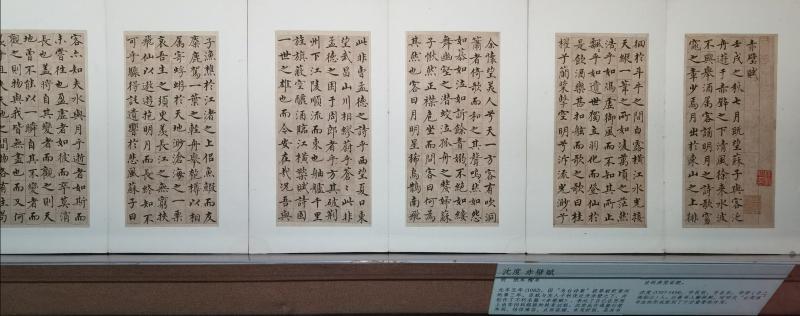 赤壁賦
壬戌之秋七月既望蘇子與客泛
舟遊于赤壁之下清風徐來水波
不興舉酒屬客誦明月之詩歌窈
窕之章少焉月出於東山之上徘
徊於斗牛之間白露橫江水光接
天縱一葦之所如凌萬頃之茫然
浩乎如馮虛御風而不知其所止
飄乎如遺世獨立羽化而登仙於
是飲酒樂甚扣舷而歌之歌曰桂
櫂兮蘭槳擊空明兮泝流光渺兮
余懷望美人兮天一方客有吹洞
簫者倚歌而和之其聲嗚然如怨
如慕如泣如訴餘音嫋不絕如縷
舞幽壑之潛蛟泣孤舟之嫠婦蘇
子愀然正襟危坐而問客曰何為
其然也客曰月明星稀烏鵲南飛
此非曹孟德之詩乎西望夏口東
望武昌山川相繆鬱乎蒼〻此非
孟德之困于周郎者乎方其破荊
州下江陵順流而東也舳艫千里
旌旗蔽空釃酒臨江橫槊賦詩固
一世之雄也而今安在哉況吾與
子漁樵於江渚之上侶魚蝦而友
麋鹿駕一葉之輕舟舉匏樽以相
屬寄蜉蝣於天地渺滄海之一粟
哀吾生之須臾羨長江之無窮挾
飛仙以遨遊抱明月而長終知不
可乎驟得託遺響於悲風蘇子曰
客亦知夫水與月乎逝者如斯而
未嘗往也盈虛者如彼而卒莫消
長也蓋將自其變者而觀之則天
地曾不能以一瞬自其不變者而
觀之則物與我皆無盡也而又何
沈度 赤壁賦